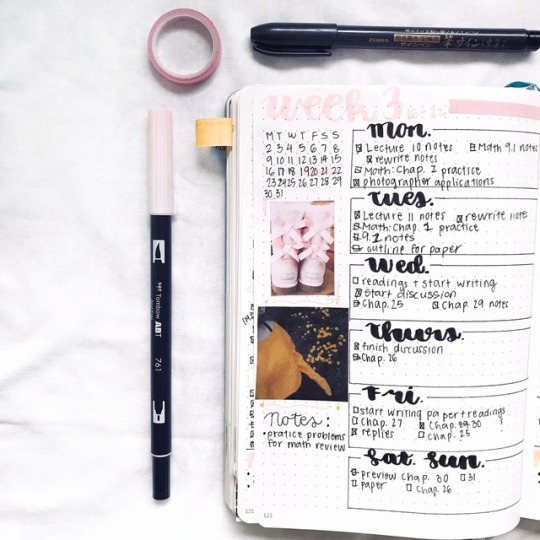 ZEBRA
week 3
M T W T F S S
2 3 4 5 6 7 8
9 10 11 12 13 14 15
16 17 18 19 20 21 22
23 24 25 26 27 28 29
30 31
mon.
Lecture 10 notes Math 9.1 notes
rewrite notes
Math: Chap. 2 practice
photographer applications
tues.
Lecture 11 notes rewrite notes
Math: Chap. 1 practice
9.2 notes
outline for paper
wed.
readings + start writing
start discussion
Chap. 25 Chap 29 notes
thurs.
finish discussion
Chap. 26
fri.
start writing paper + readings
Chap. 27 Chap. 30
replies Chap. 25
sat. sun.
preview chap. 30 31
paper Chap. 26
Notes:
• pratice problems
for math review
Tombow ABT 761
121
122